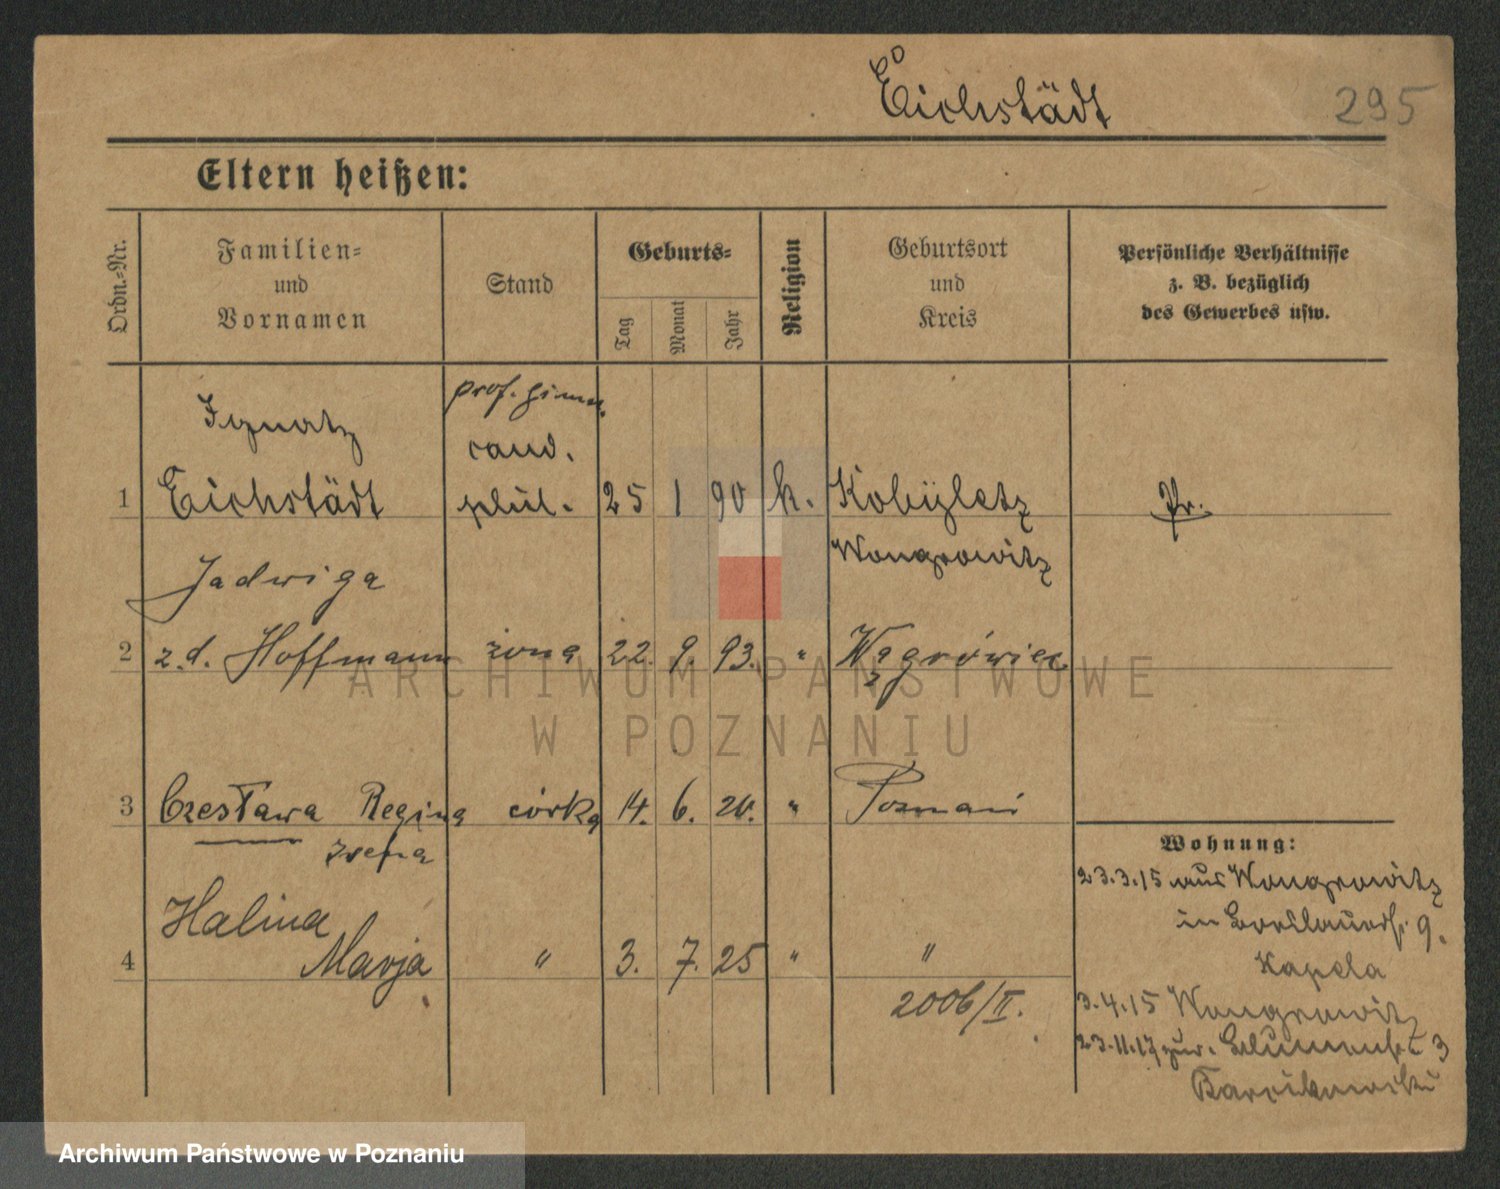 Eichstädt
295
Eltern heißen:
Ordn.-Nr.
Familien-
und
Vornamen
Stand
Geburts-
Tag
Monat
Jahr
Religion
Geburtsort
und
Kreis
Persönliche Verhältnisse
z. B. bezüglich
des Gewerbes usw.
prof. gimn.
Ignatz
cand.
1 Eichstädt phil. 25 1 90 k. Kobyletz Pr.
Wongrowitz
Jadwiga
2 z.d. Hoffmann żona 22. 9. 93. " Wągrówiec
3 Czesława Regina córka 14. 6. 20. " Poznań
Irena
Wohnung:
23.3.15 aus Wongrowitz
Halina
in 9.
4 Marja " 3. 7. 25 " "
Kapela
2006/II.
3.4.15 Wongrowitz
23.11.17 zur. Blumenstr. 3
ARCHIWUM PAŃSTWOWE
W POZNANIU
Archiwum Państwowe w Poznaniu